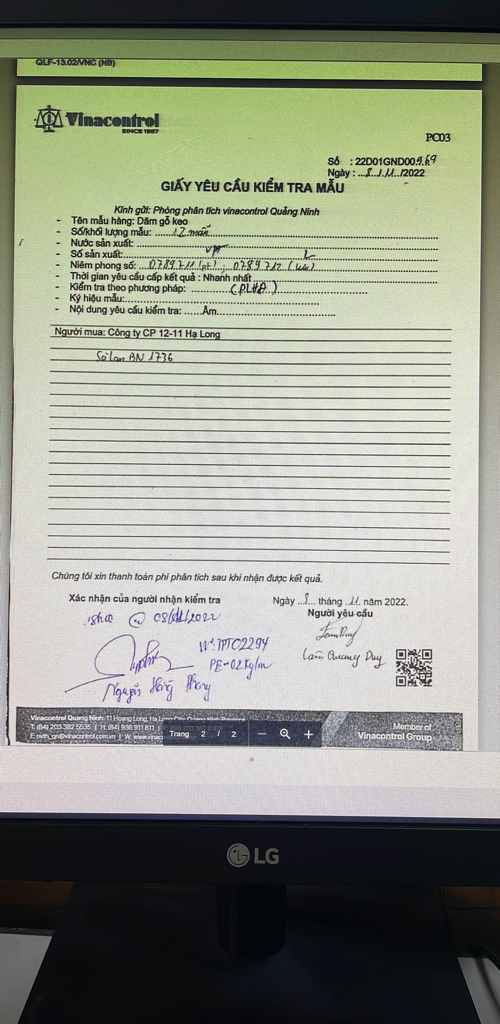 QLF-13.02/VNC (NB)
Vinacontrol
SINCE 1957
PC03
Số : 22D01GND00969
Ngày : ...8../.11../2022
GIẤY YÊU CẦU KIỂM TRA MẪU
Kính gửi: Phòng phân tích vinacontrol Quảng Ninh
- Tên mẫu hàng: Dăm gỗ keo
- Số/khối lượng mẫu: 12 mẫu
- Nước sản xuất:
- Số sản xuất:
- Niêm phong số: 0789711 (pt), 0789712
- Thời gian yêu cầu cấp kết quả : Nhanh nhất
- Kiểm tra theo phương pháp:
- Ký hiệu mẫu:
- Nội dung yêu cầu kiểm tra: Ẩm
Người mua: Công ty CP 12-11 Hạ Long
Sà lan BN 1736
Chúng tôi xin thanh toán phí phân tích sau khi nhận được kết quả.
Xác nhận của người nhận kiểm tra
Ngày ..8.. tháng ..11.. năm 2022.
Người yêu cầu
15h00 @ 08/11/2022
No: TPTO2294
PE-02kg/m
Lâm Quang Duy
Nguyễn Hồng Phong
Vinacontrol Quang Ninh: 11 Hoang Long, Ha Long City, Quang Ninh Province
T: (84) 203 382 5535 | H: (84) 936 911 811 |
| W: www.vinac
Trang 2 / 2
Member of
Vinacontrol Group
LG